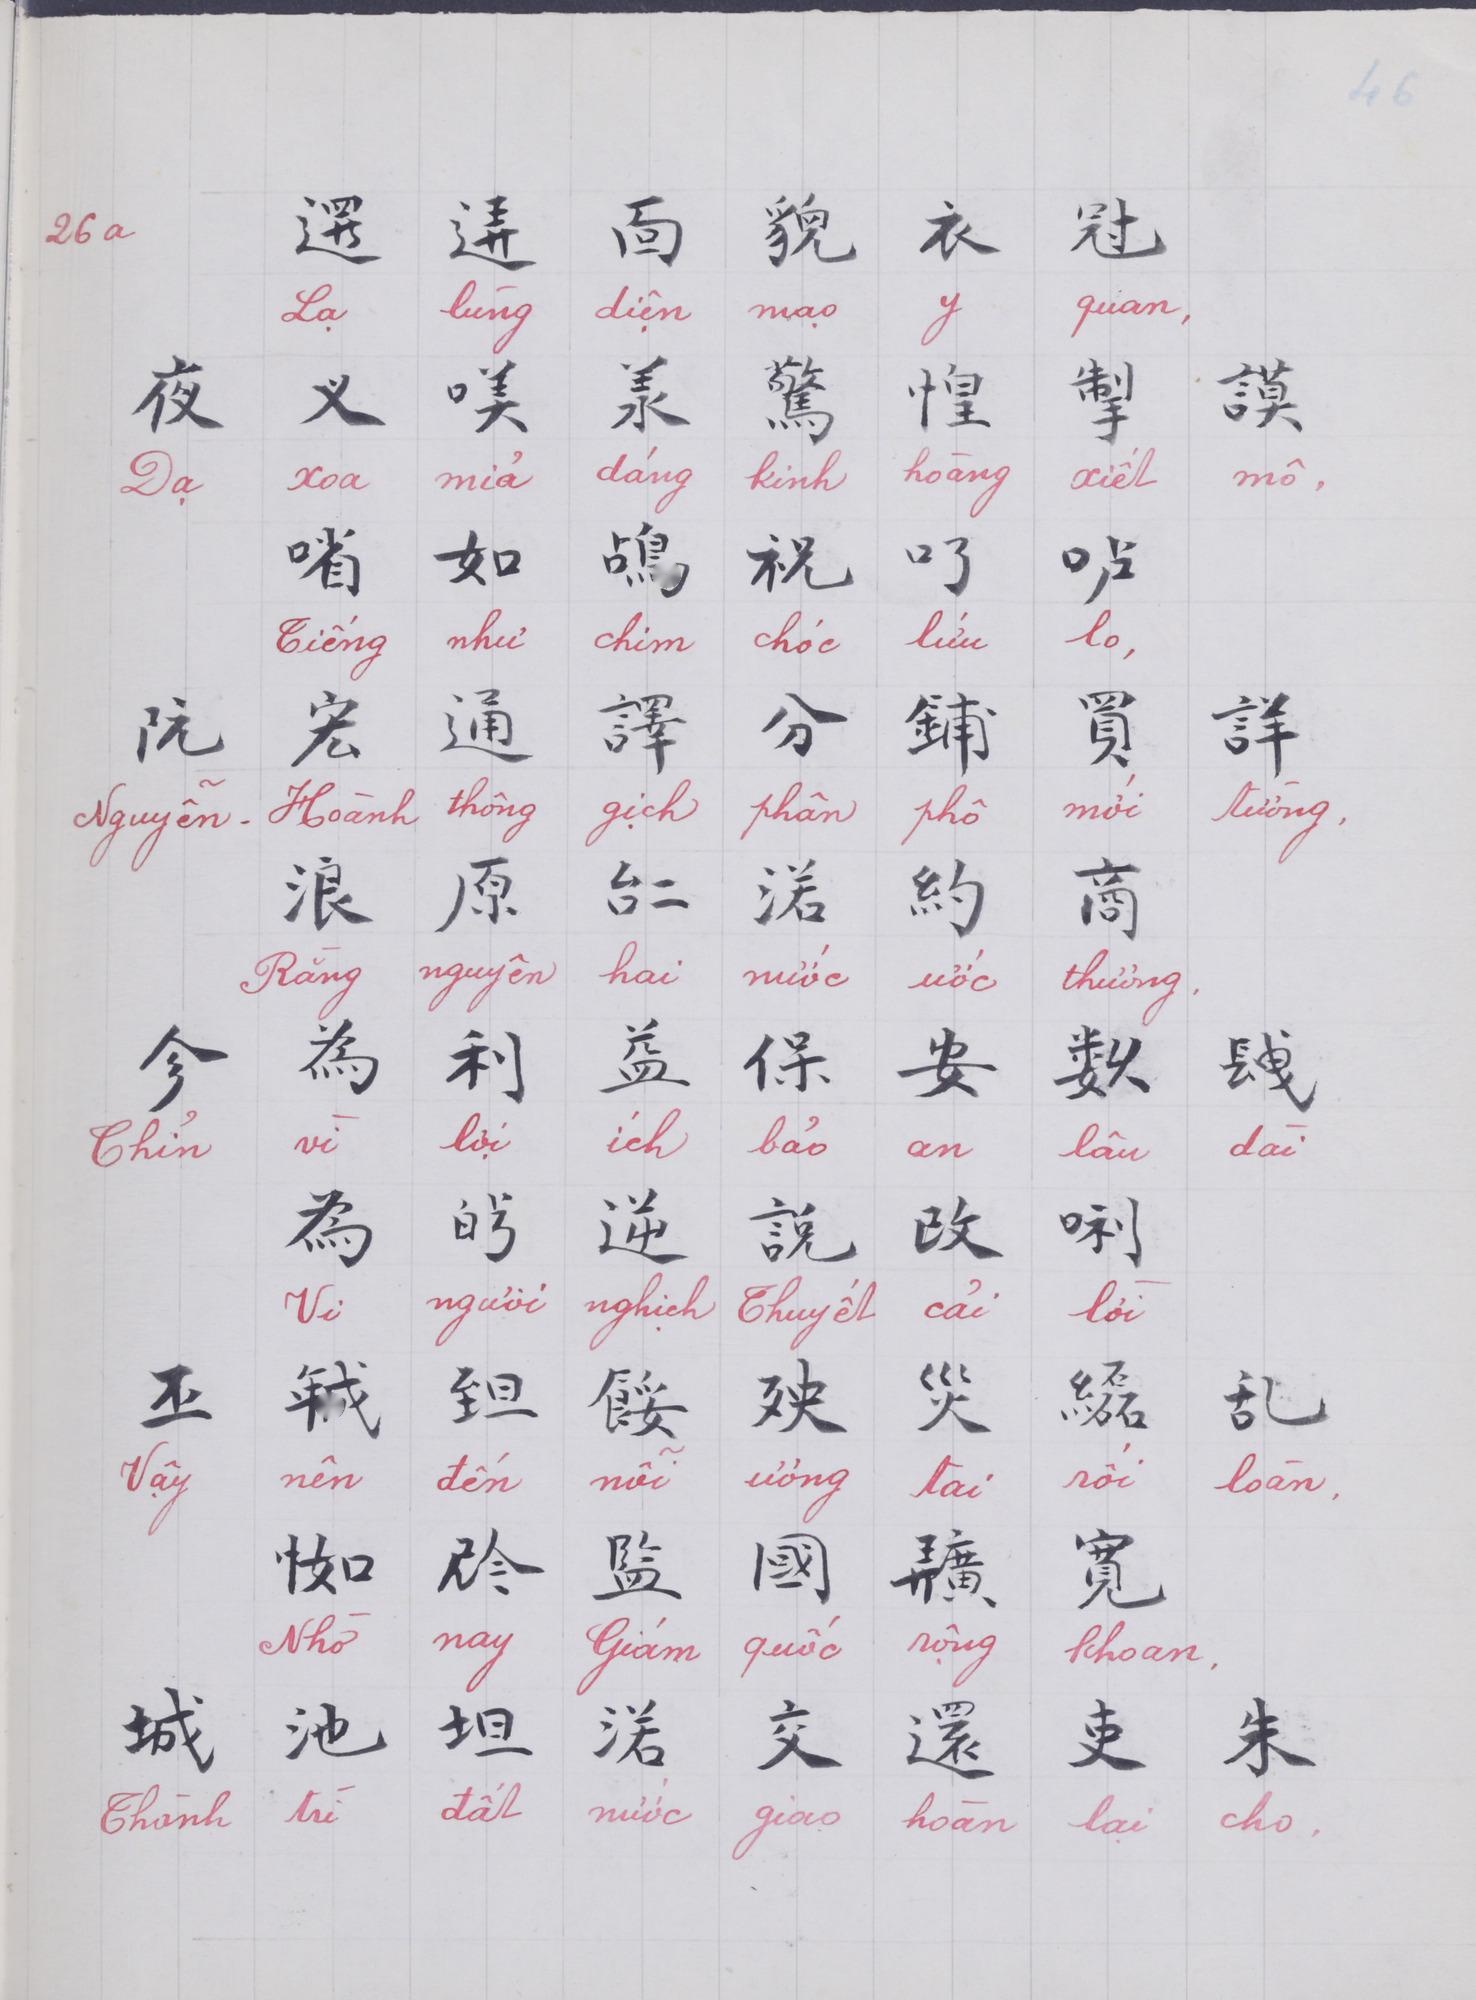 46
26a
遻 逩 面 貌 衣 冠
Lạ lùng diện mạo y quan,
夜 义 𠸍 羕 驚 惶 掣 謨
Dạ xoa miả dáng kinh hoàng xiết mô,
㗂 如 鴣 祝 叮 呫
Tiếng như chim chóc líu lo,
阮 宏 通 譯 分 鋪 買 詳
Nguyễn-Hoành thông gịch phân phô mới tường,
浪 原 𠄩 渃 約 商
Rằng nguyên hai nước ước thương,
㐱 為 利 益 保 安 数 𨱽
Chỉn vì lợi ích bảo an lâu dài
為 𠊚 逆 說 改 唎
Vì người nghịch Thuyết cải lời
丕 𢧚 𦤾 餒 殃 災 𦇒 乱
Vậy nên đến nỗi ương tai rối loàn,
𢘾 𫢩 監 國 𢌌 寬
Nhờ nay Giám quốc rộng khoan,
城 池 坦 渃 交 還 吏 朱
Thành trì đất nước giao hoàn lại cho,